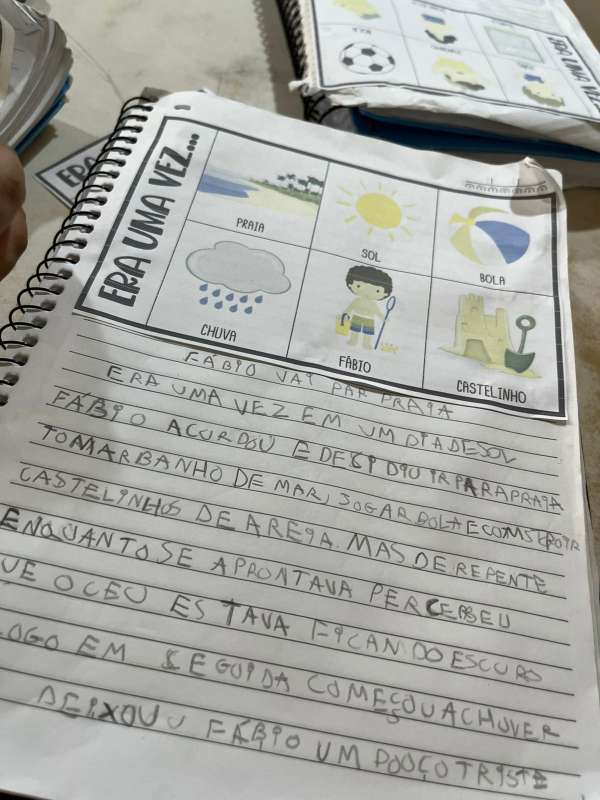 ERA UMA VEZ...
PRAIA
SOL
BOLA
CHUVA
FÁBIO
CASTELINHO
FÁBIO VAI PAR PRAIA
ERA UMA VEZ EM UM DIA DE SOL
FÁBIO ACORDOU E DECIDIU IR PARA PRAIA
TOMAR BANHO DE MAR, JOGAR BOLA E
CASTELINHOS DE AREIA. MAS DE REPENTE
ENQUANTO SE APRONTAVA PERCEBEU
UE O CEU ESTAVA FICANDO ESCURO
OGO EM SEGUIDA COMEÇOU A CHOVER
DEIXOU FÁBIO UM POUCO TRISTE
ERA UMA VEZ
ERA